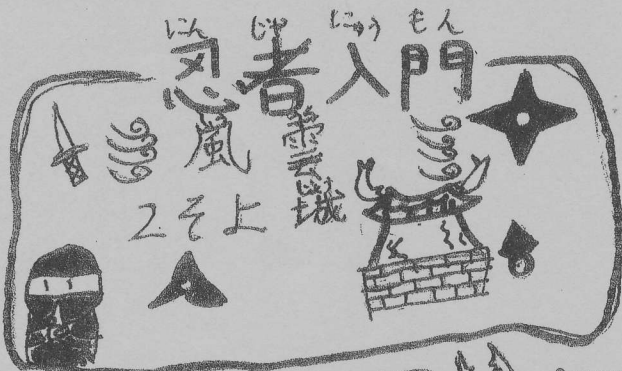 にん じゃ にゅう もん
忍者入門
嵐
雲城